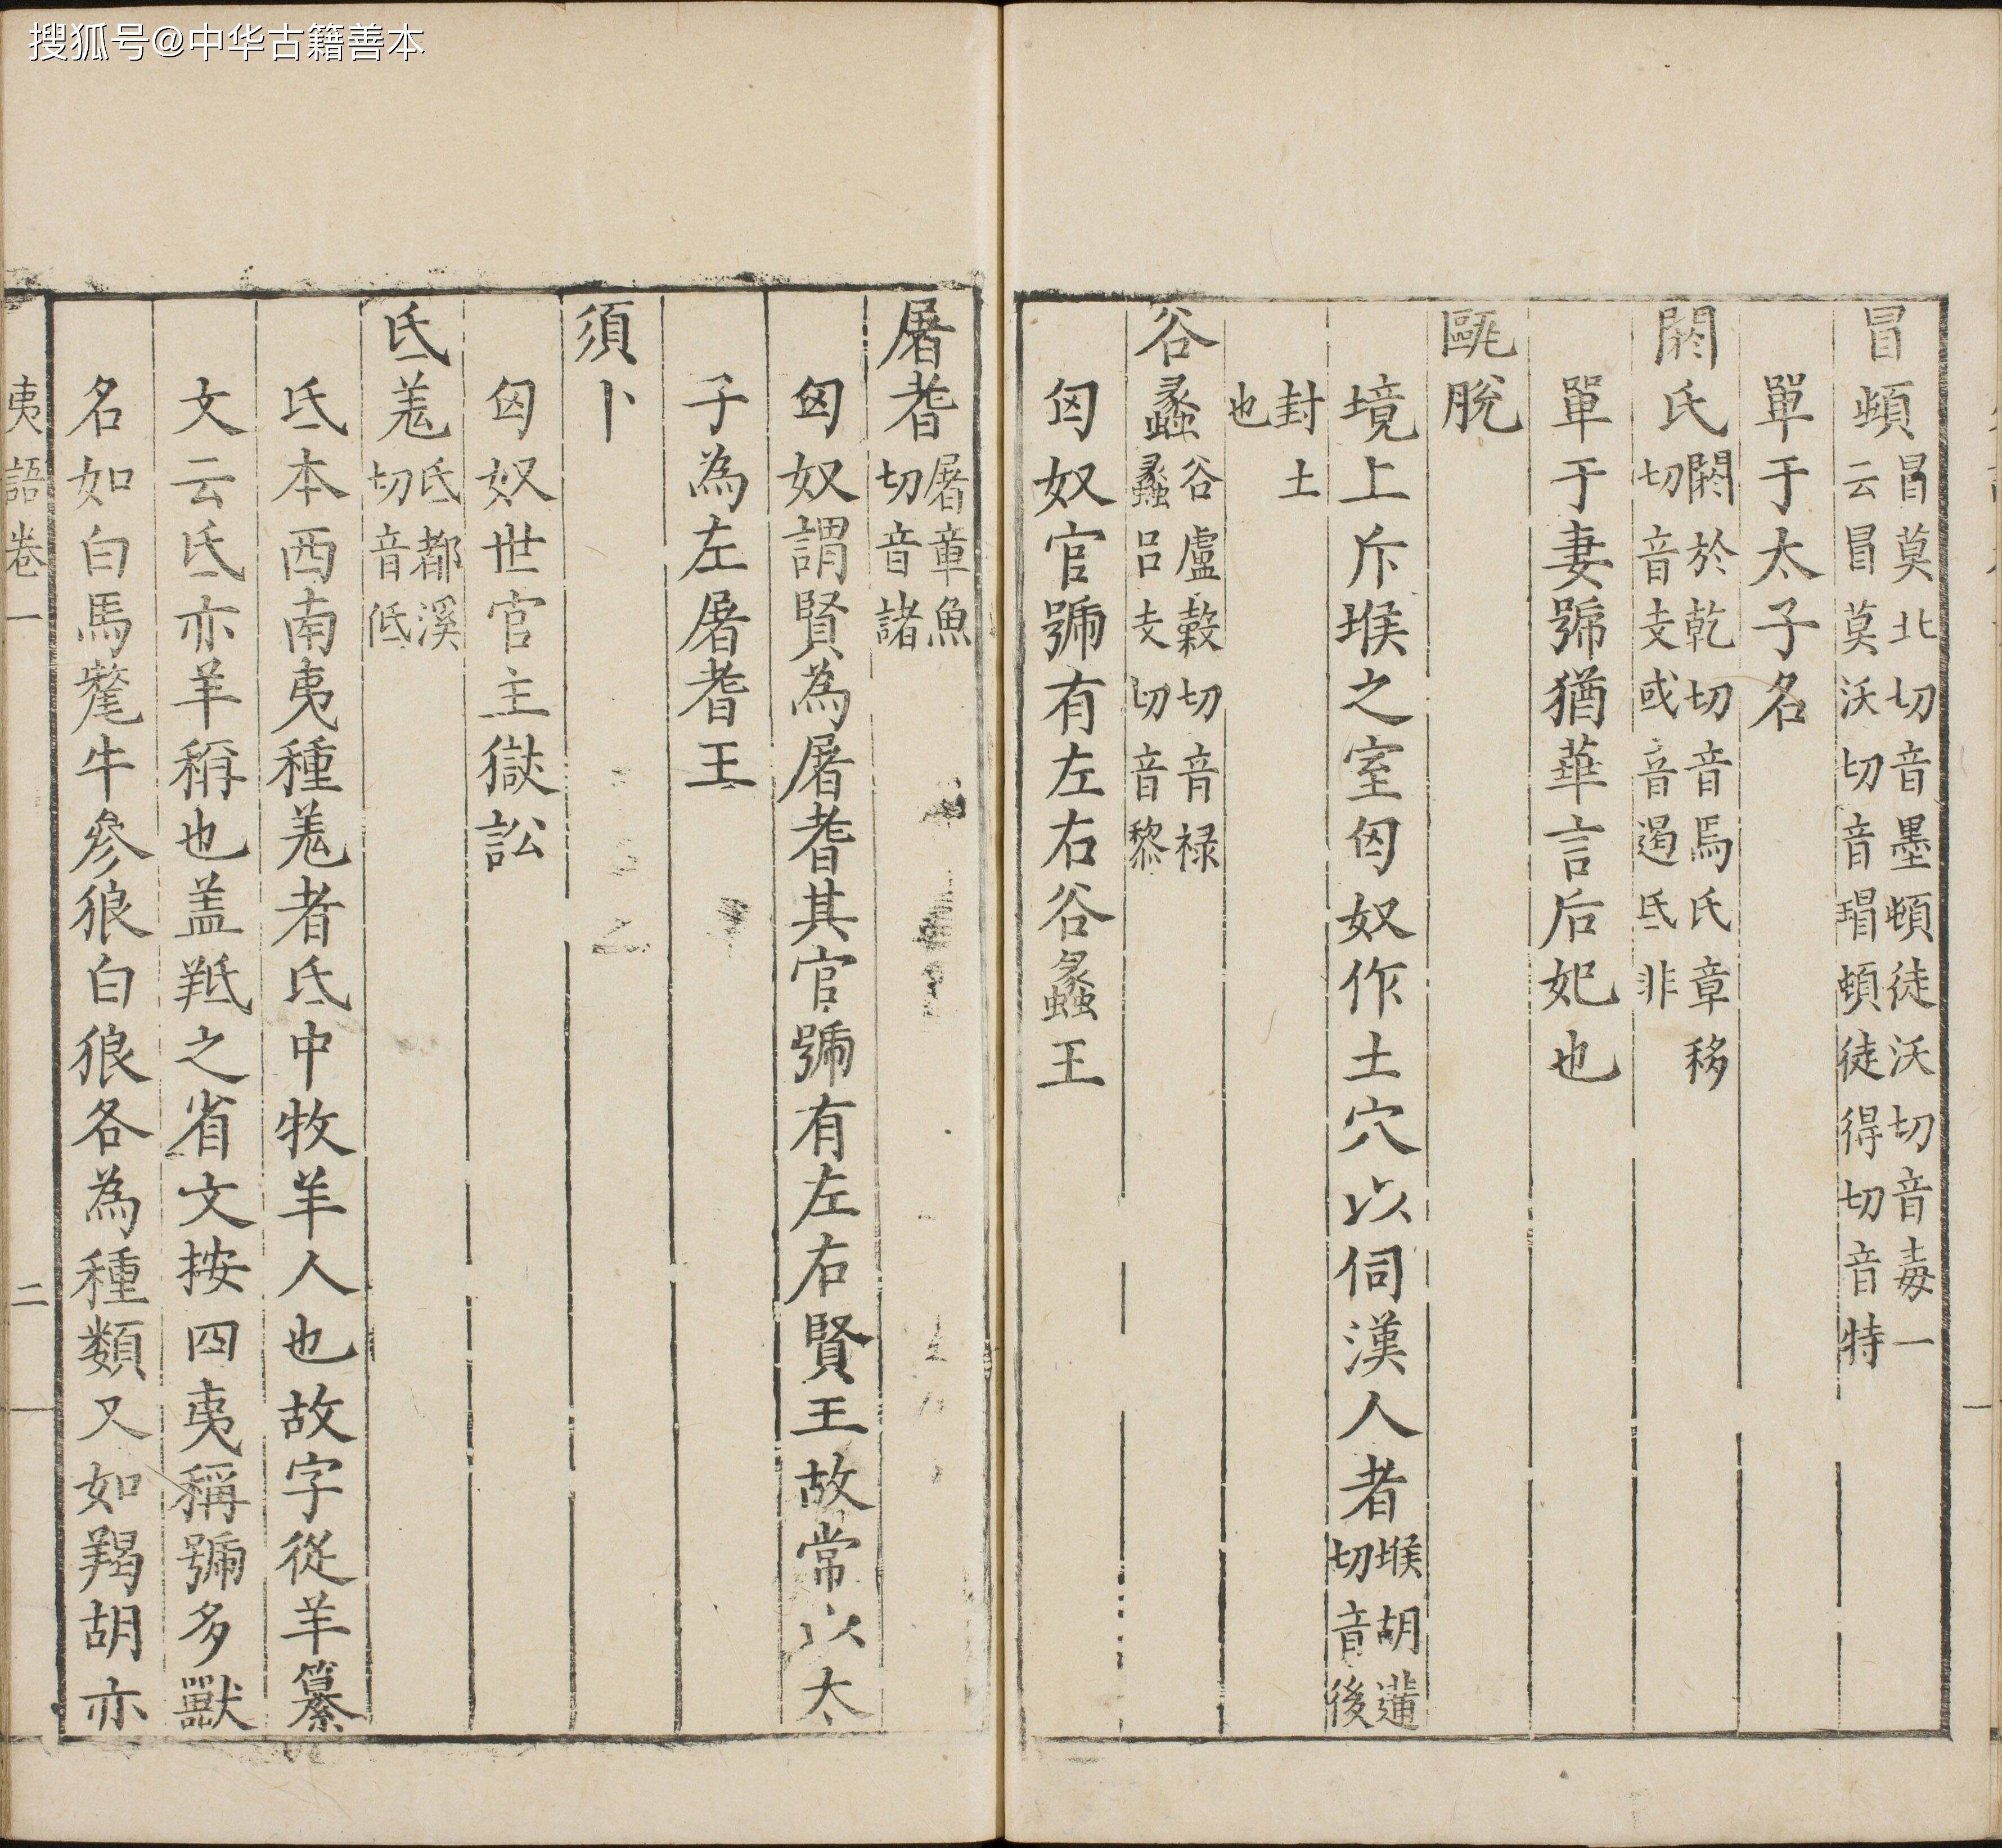 搜狐号@中华古籍善本
冒頓冒莫北切音墨頓徒沃切音毒一云冒莫沃切音瑁頓徒得切音特
單于太子名
閼氏閼於乾切音焉氏章移切音支或音遏氐非
單于妻號猶華言后妃也
甌脫
境上斥堠之室匈奴作土穴以伺漢人者堠胡遘切音後
封土也
谷蠡谷盧穀切音禄蠡呂支切音黎
匈奴官號有左右谷蠡王
屠耆屠章魚切音諸
匈奴謂賢為屠耆其官號有左右賢王故常以太
子為左屠耆王
須卜
匈奴世官主獄訟
氐羗氐都溪切音低
氐本西南夷種羗者氐中牧羊人也故字從羊纂
文云氐亦羊稱也盖羝之省文按四夷稱號多獸
名如白馬氂牛參狼白狼各為種類又如羯胡亦
夷語卷一
二